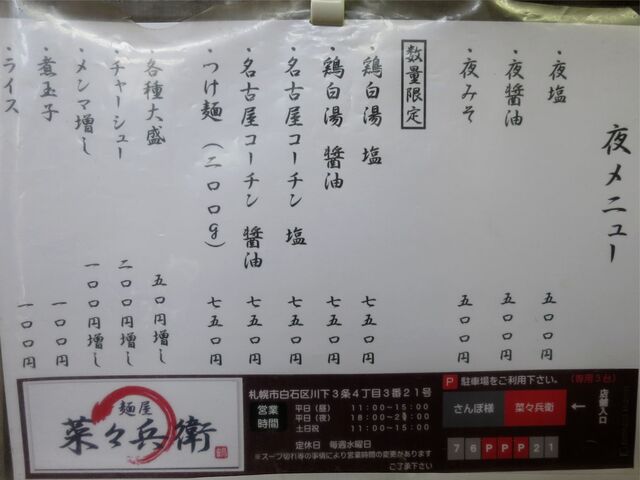 夜メニュー
・夜塩 五〇〇円
・夜醤油 五〇〇円
・夜みそ 五〇〇円
数量限定
・鶏白湯 塩 七五〇円
・鶏白湯 醤油 七五〇円
・名古屋コーチン 塩 七五〇円
・名古屋コーチン 醤油 七五〇円
・つけ麺（二〇〇g） 七五〇円
・各種大盛 五〇円増し
・チャーシュー 二〇〇円増し
・メンマ増し 一〇〇円増し
・煮玉子 一〇〇円
・ライス 一〇〇円
麺屋
菜々兵衛
札幌市白石区川下3条4丁目3番21号
営業時間
平日(昼) 11:00~15:00
平日(夜) 18:00~20:00
土日祝 11:00~15:00
定休日 毎週水曜日
※スープ切れ等の事情により営業時間の変更があります
ご了承下さい
P 駐車場をご利用下さい。(専用3台)
さんぽ様 菜々兵衛 ← 店舗入口
7 6 P P P 2 1